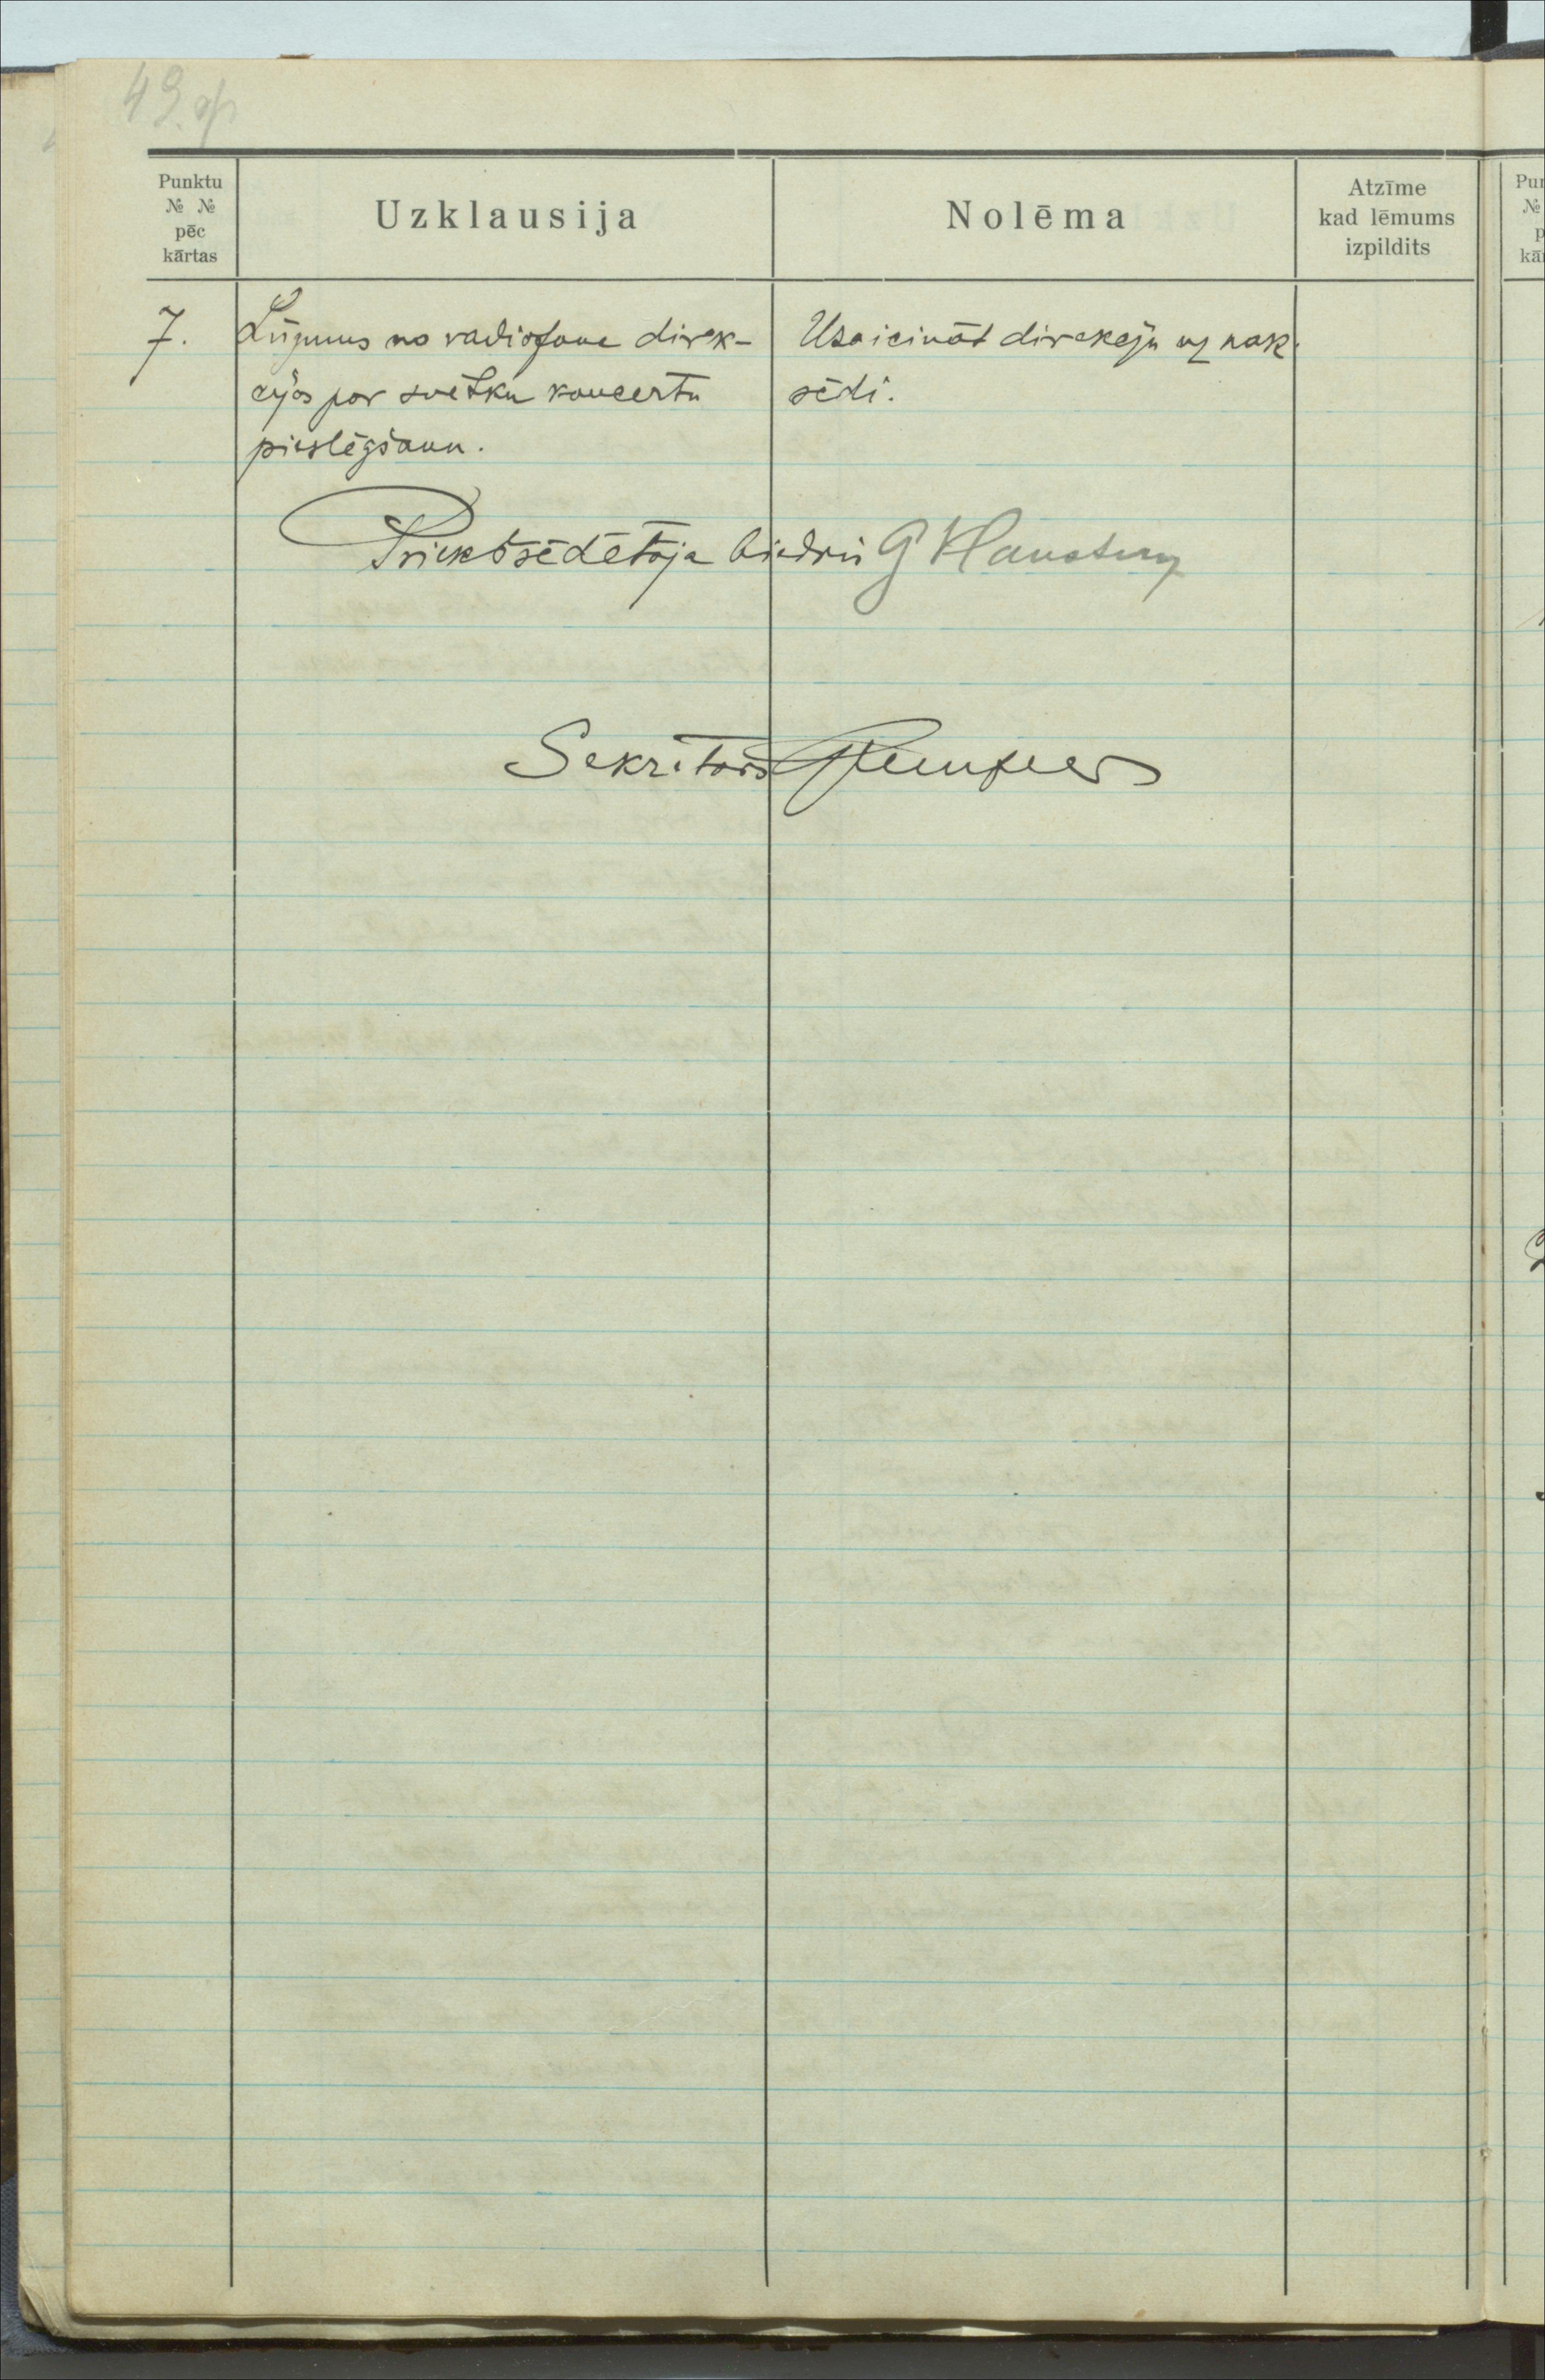 49. op
Punktu
№ №
pēc
kārtas
Uzklausija
Nolēma
Atzīme
kad lēmums
izpildits
7.
Lūgums no radiofona direk-
cijas par svētku koncertu
pieslēgšanu.
Uzaicināt direkciju uz nāk.
sēdi.
Priekšsēdētāja biedris G
Sekretārs